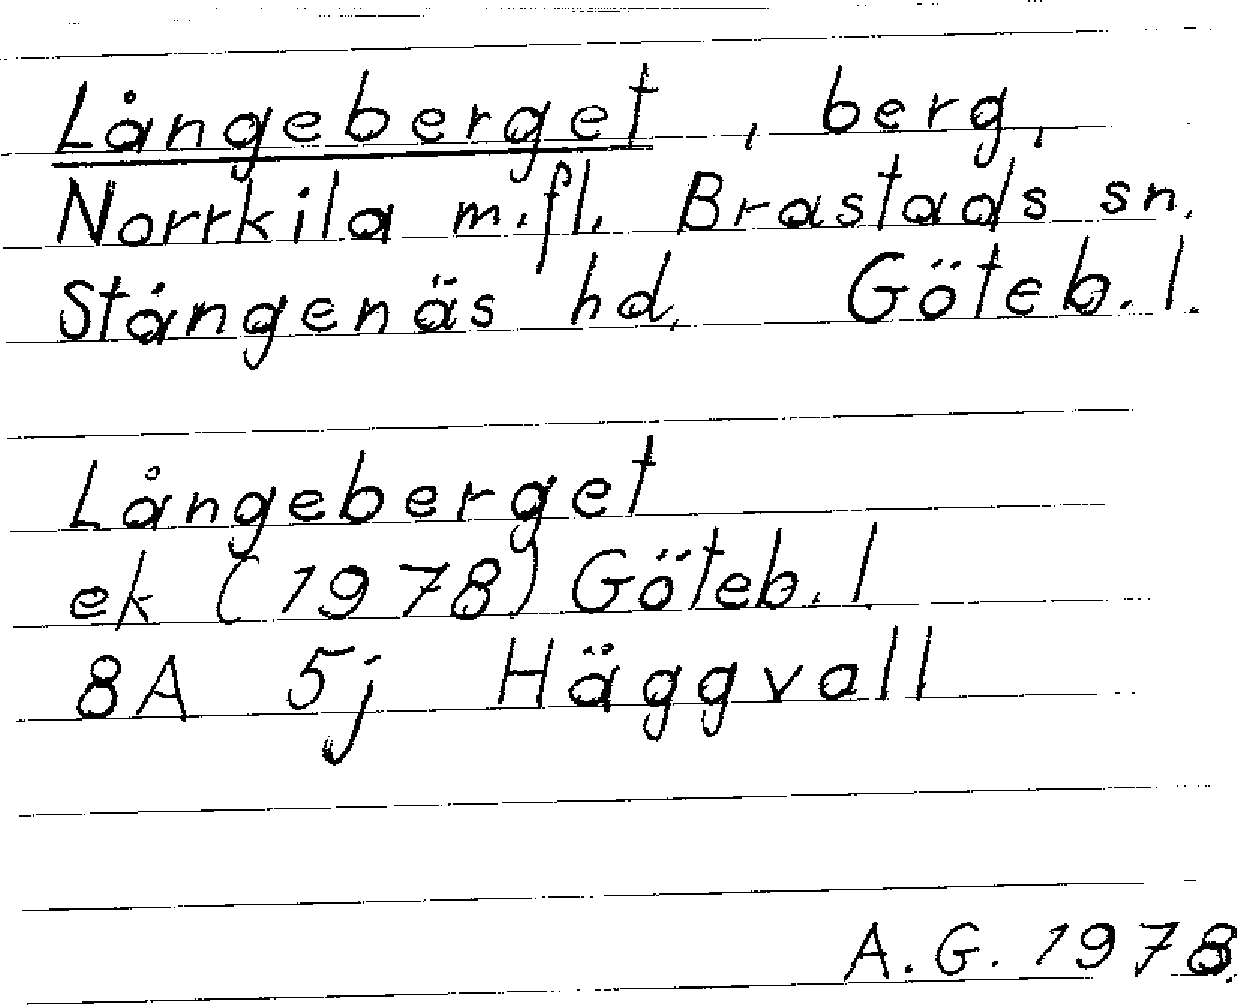 Långeberget, berg,
Norrkila m.fl. Brastads sn.
Stångenäs hd, Göteb. l.
Långeberget
ek (1978) Göteb. l
8A 5j Häggvall
A.G. 1978.